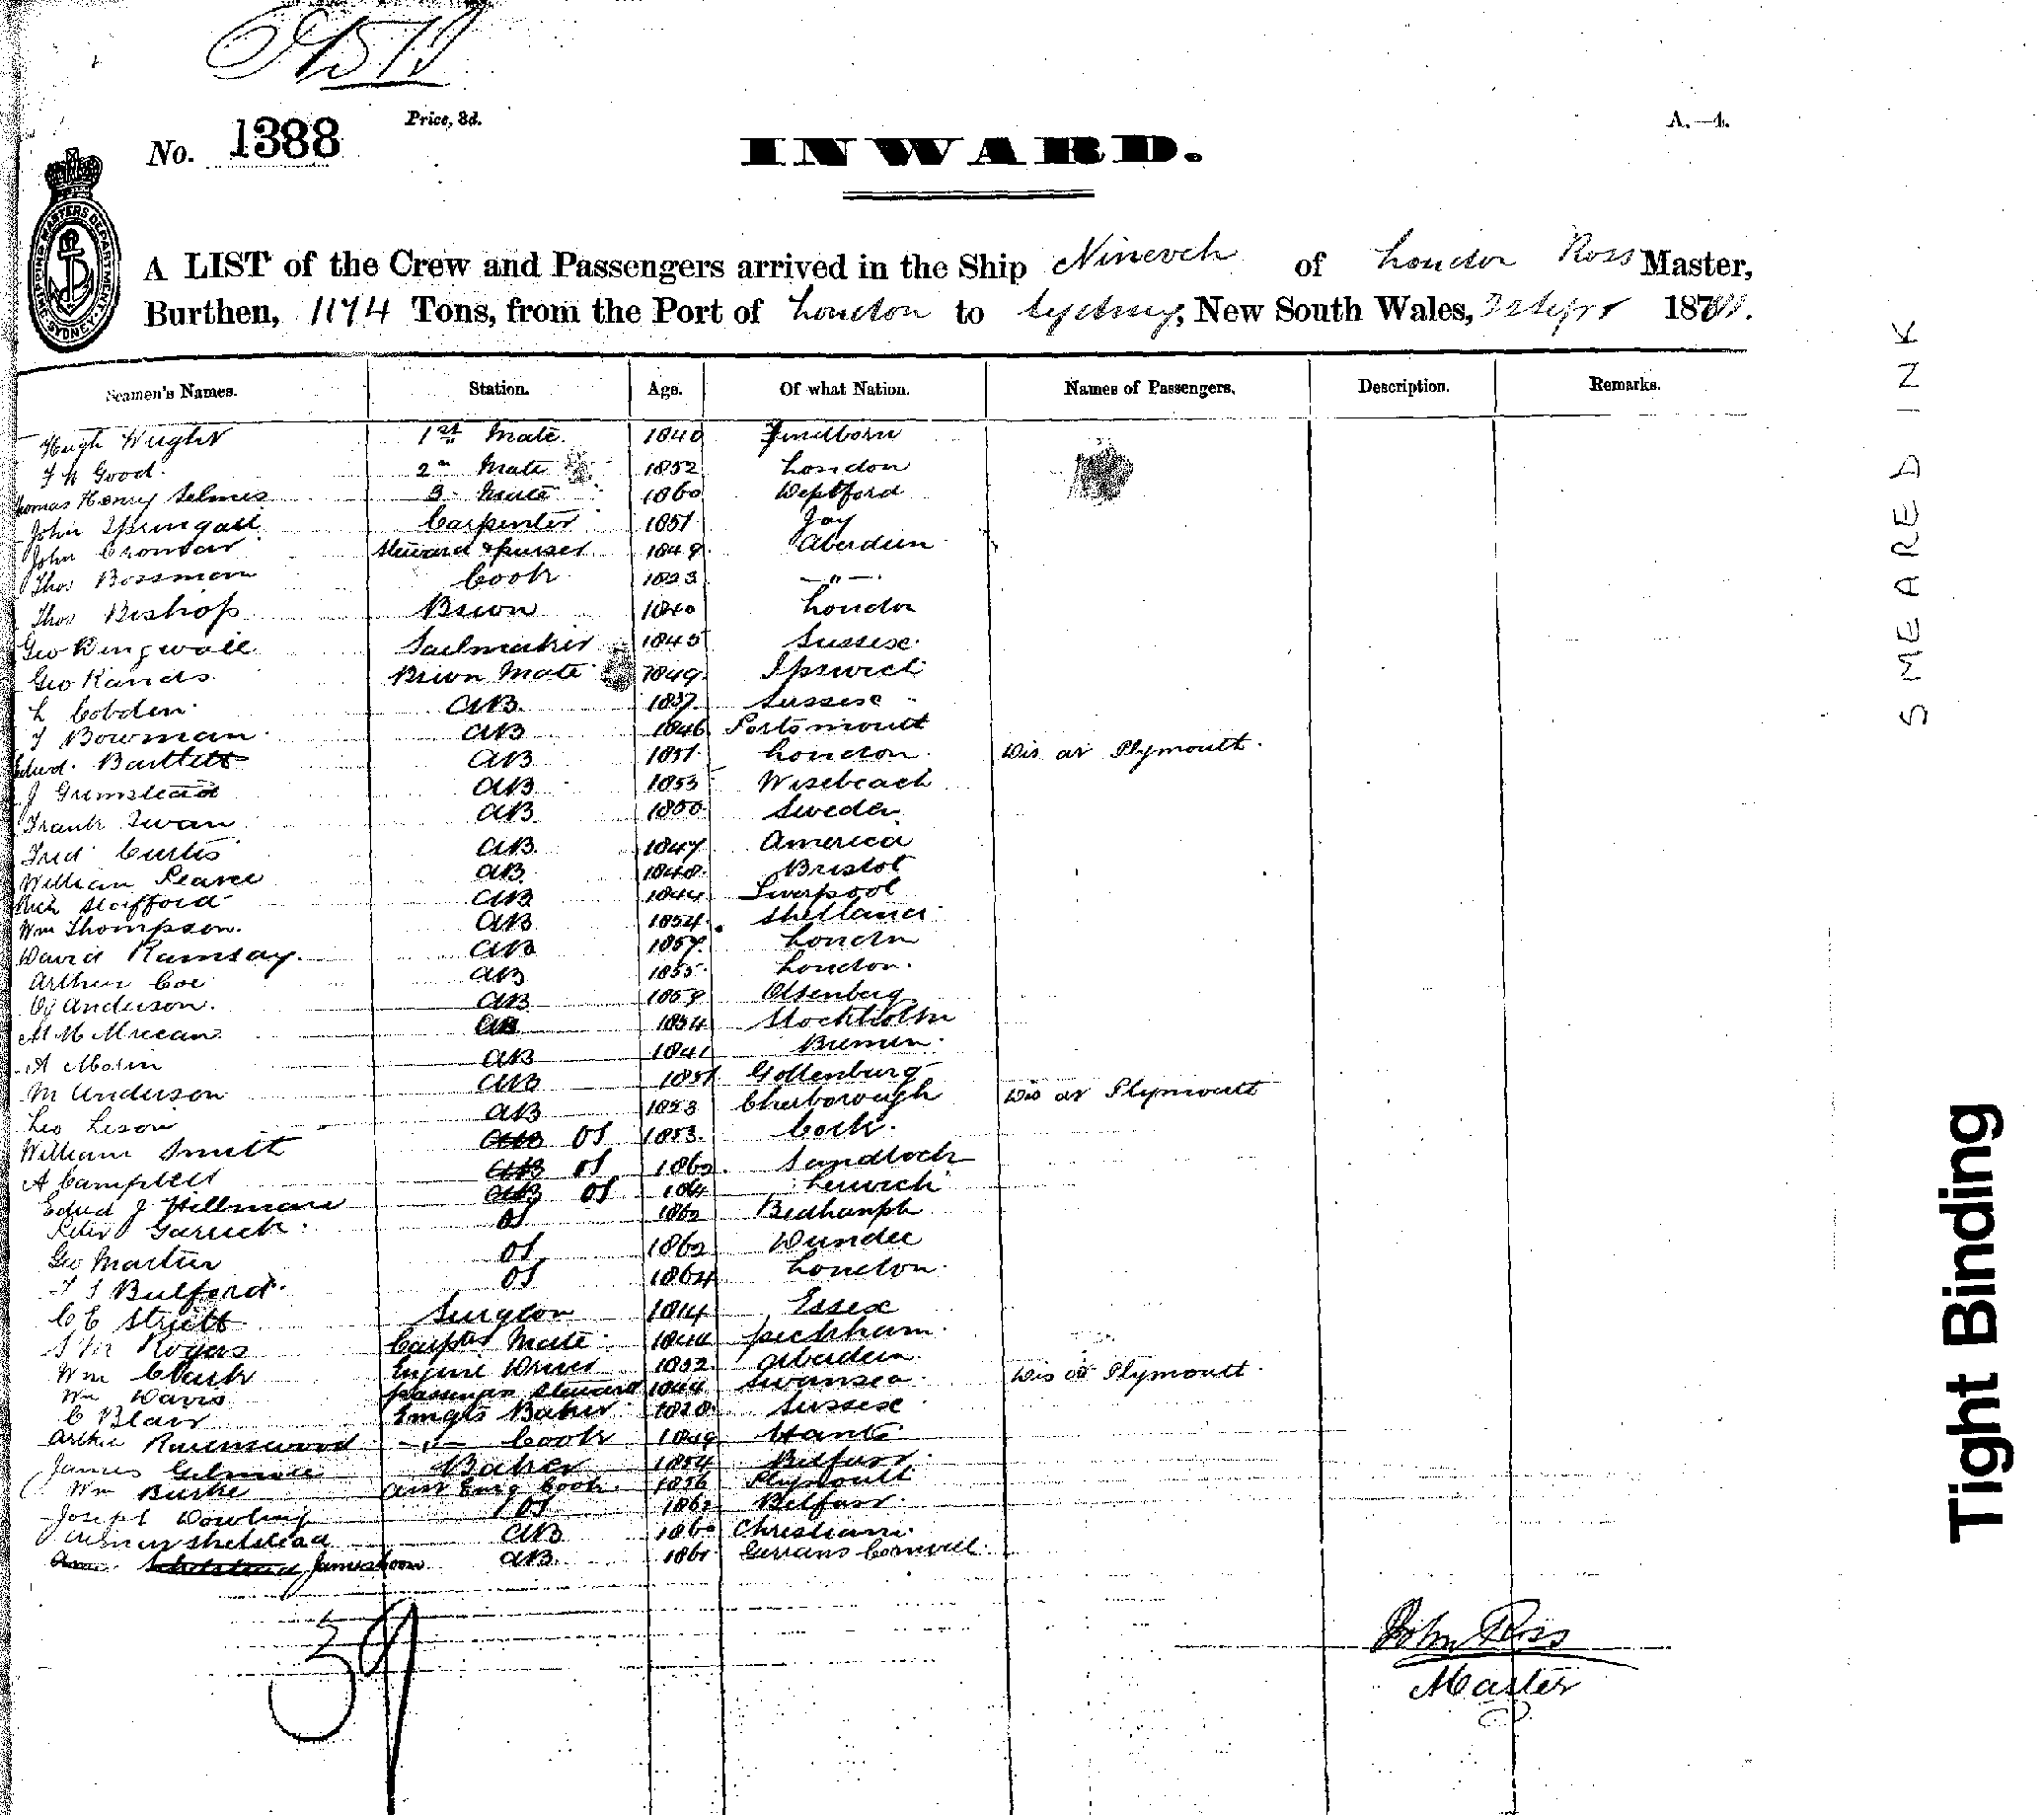 No. 1388
Price, 3d.
A.—4.
INWARD.
SHIPPING MASTERS DEPARTMENT SYDNEY
A LIST of the Crew and Passengers arrived in the Ship Nineveh of London Ross Master,
Burthen, 1174 Tons, from the Port of London to Sydney, New South Wales, 187
Seamen's Names. Station. Age. Of what Nation. Names of Passengers. Description. Remarks.
Hugh Wright 1st Mate 1840 Findhorn
Good 2nd Mate 1852 London
Thomas Henry Selmes 3 Mate 1860 Deptford
John Springall Carpenter 1851
John Crombar Steward & purser 1849 Aberdeen
Thos Bossman Cook 1823 —"—
Thos Bishop Bswn 1840 London
Geo Dingwall Sailmaker 1845 Sussex
Geo Rands Bswn Mate 1849 Ipswich
L Cobden AB 1837 Sussex
T Bowman AB 1846 Portsmouth
Edwd. Bartlett AB 1851 London Dis at Plymouth
J Grimstead AB 1853 Wisebeach
Frank Swan AB 1850 Sweden
Fred Curtis AB 1847 America
William Pearce AB 1848 Bristol
Rich Stafford AB 1844 Liverpool
Wm Thompson AB 1854 Shetland
David Ramsay AB 1857 London
Arthur Coe AB 1855 London
Anderson AB 1859
AB 1854 Stockholm
A AB 1841 Bremen
M Anderson AB 1851 Gottenburg
Leo AB 1853 Cherborough Dis at Plymouth
William Smith AB OS 1853 Cork
A Campbell AB OS 1862 Sandloch
Edwd J Hillman AB OS Lerwick
Peter Garrick OS 1862 Bedhanph
Geo Martin OS 1862 Dundee
Bulford OS 1864 London
C E Strutt Surgeon 1814 Essex
S M Rogers Carptrs Mate 1844 peckham
Wm Clark Engine Driver 1852 Aberdeen
Wm Davis passenger Steward 1844 Swansea Dis at Plymouth
C Blair Emgts Baker 1828 Sussex
Arthur Ravenswood —"— Cook 1849 Hants
James Gilmore Baker 1854 Belfast
Wm Burke Asst Emig Cook 1856 Plymouth
Joseph Dowling OS 1862 Belfast
AB 1860 Christiania
James Coon AB 1861 Gerrans Cornwall
39
John Ross
Master
SMEARED INK
Tight Binding